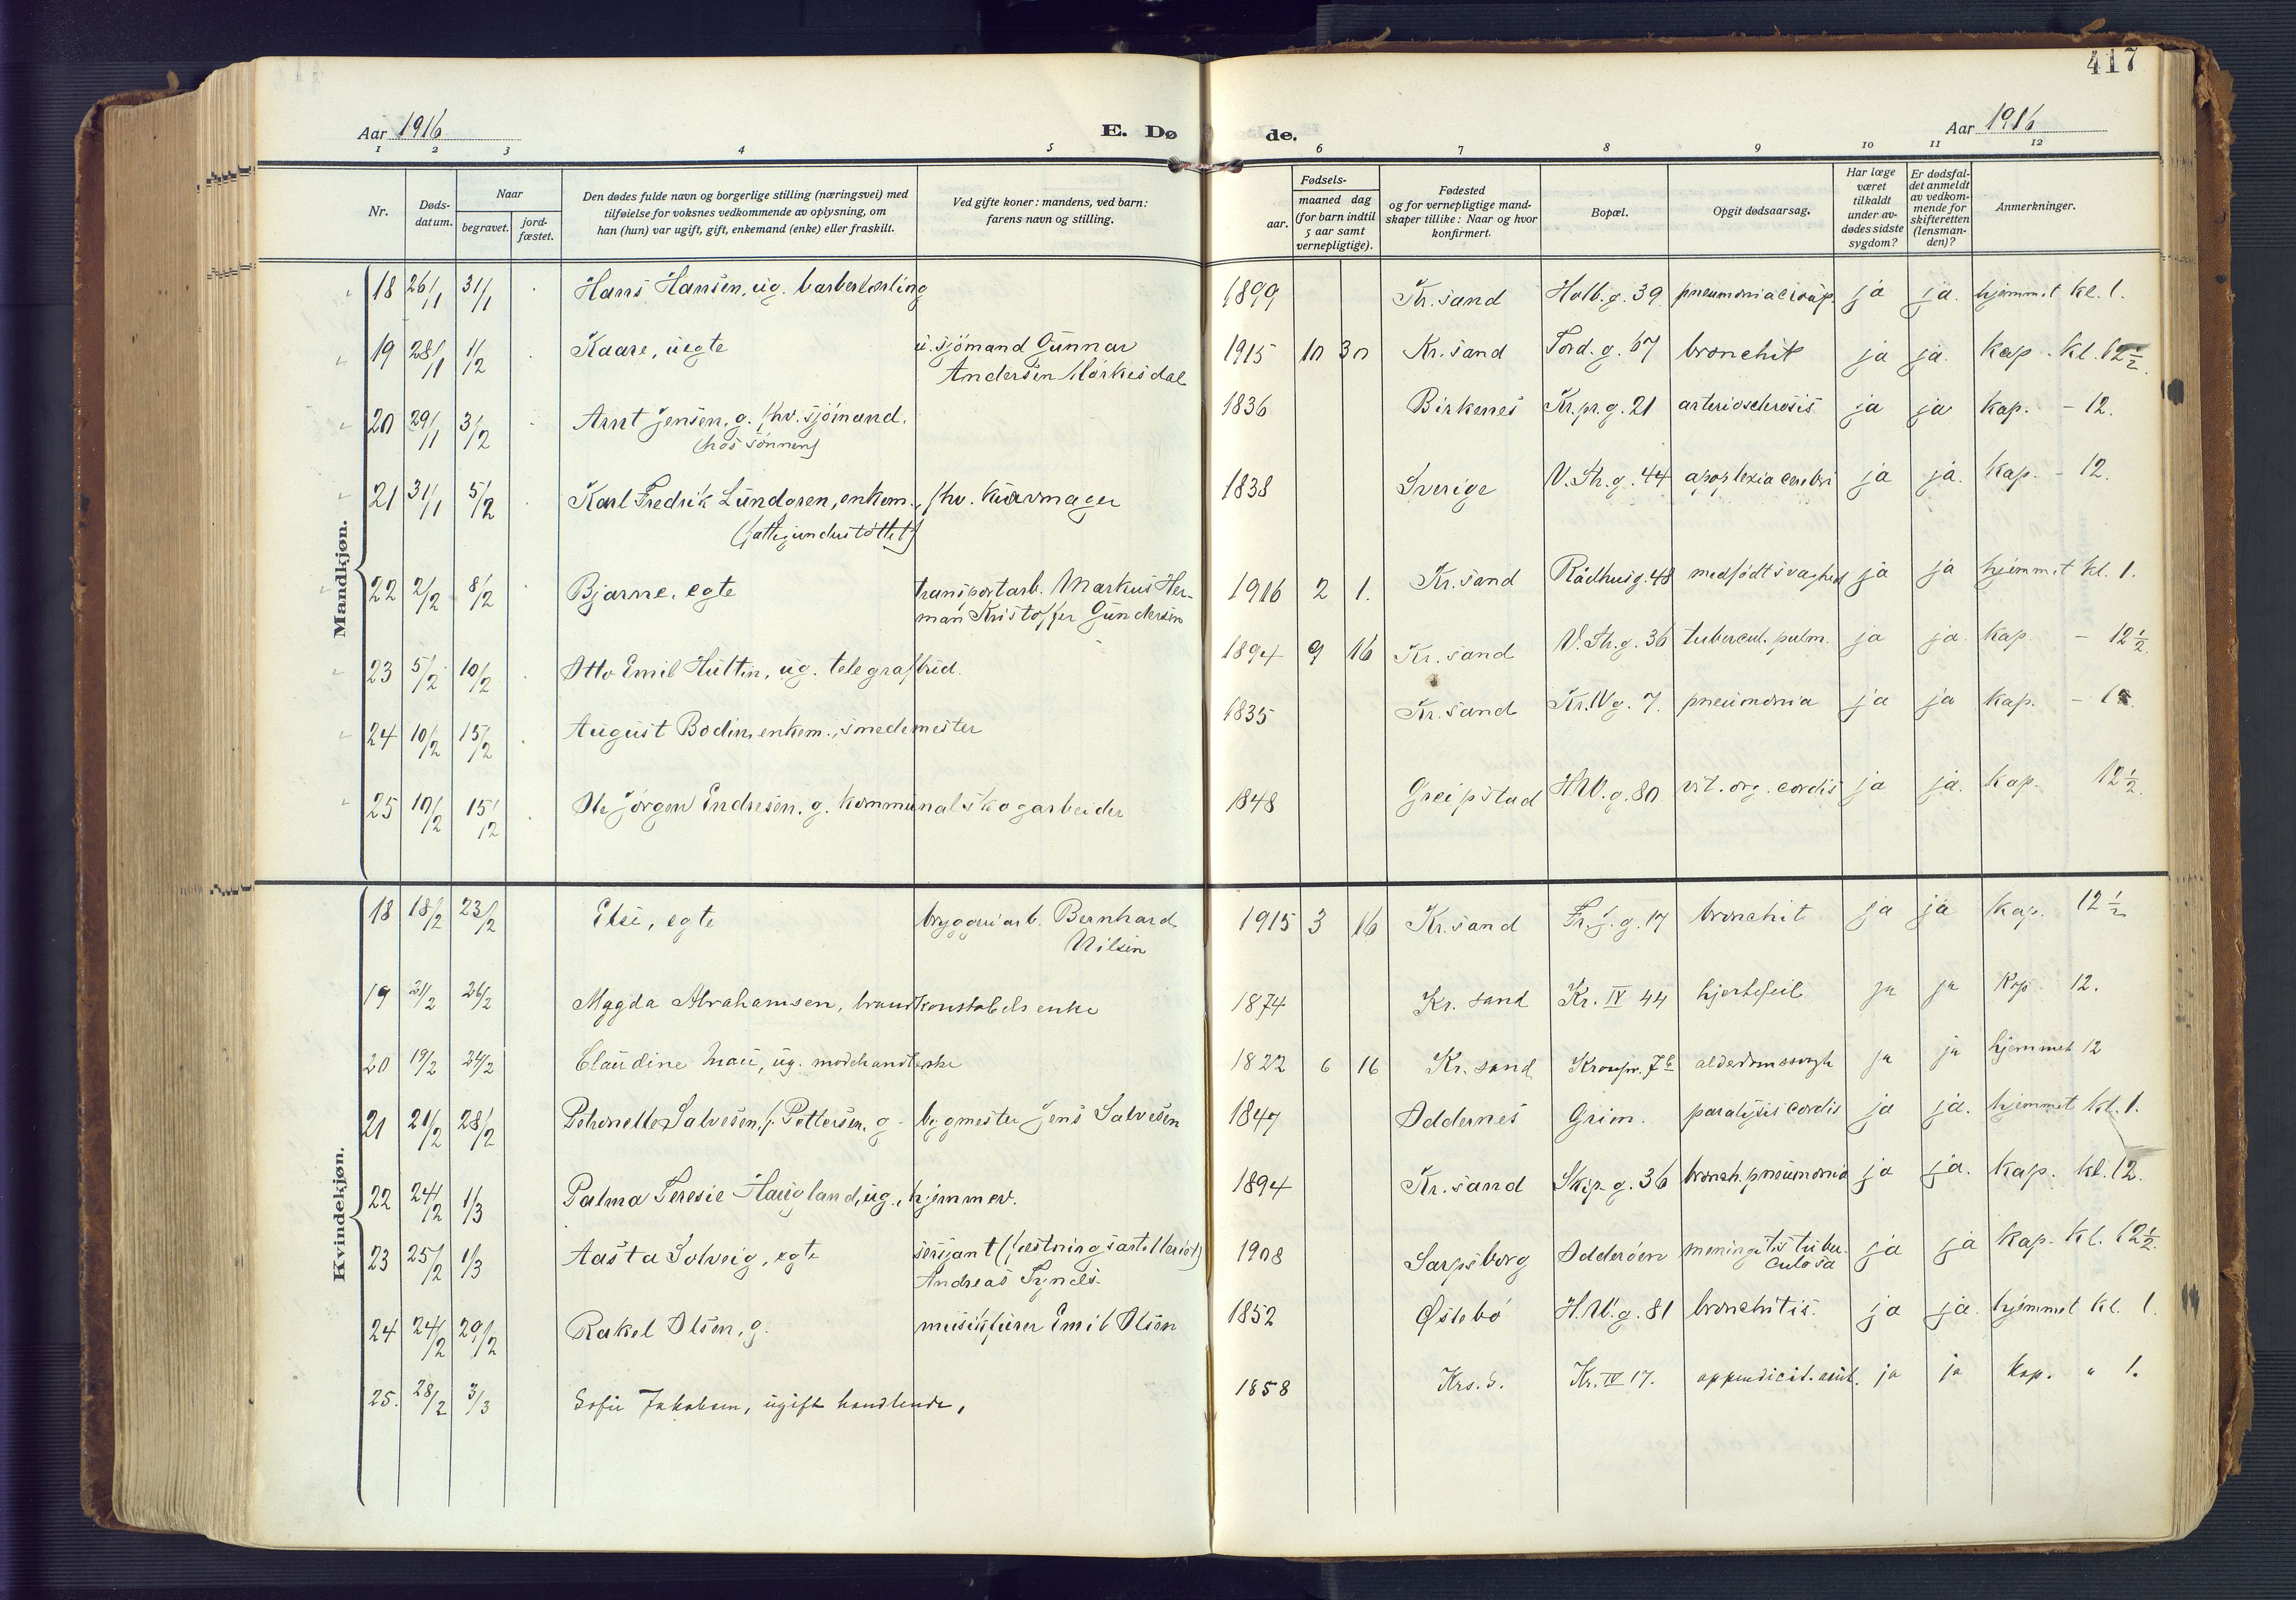 417
Aar 1916 E. Dø de. Aar 1916
1 2 3 4 5 6 7 8 9 10 11 12
Nr. Døds-datum. Naar begravet. jord-fæstet. Den dødes fulde navn og borgerlige stilling (næringsvei) med tilføielse for voksnes vedkommende av oplysning, om han (hun) var ugift, gift, enkemand (enke) eller fraskilt. Ved gifte koner: mandens, ved barn: farens navn og stilling. Fødsels- aar. maaned dag (for barn indtil 5 aar samt vernepligtige). Fødested og for vernepligtige mand-skaper tillike: Naar og hvor konfirmert. Bopæl. Opgit dødsaarsag. Har læge været tilkaldt under av-dødes sidste sygdom? Er dødsfal-det anmeldt av vedkom-mende for skifteretten (lensman-den)? Anmerkninger.
Mandkjøn.
18 26/1 31/1 Hans Hansen, ug. barberlærling 1899 Kr.sand Holb.g. 39 pneumonia croup. ja ja. hjemmet kl. 1.
19 28/1 1/2 Kaare, uegte u. sjömand Gunnar 1915 10 30 Kr.sand Tord.g. 67 bronchit ja ja. kap. kl. 12½.
Andersen Mörkesdal
20 29/1 3/2 Arnt Jensen, g. fhv. sjömand. 1836 Birkenes Kr.pr.g. 21 arteriosclerosis ja ja kap. - 12.
(hos sönnen)
21 31/1 5/2 Karl Fredrik Lundgren, enkem., fhv. kurvmager 1838 Sverige V.Str.g. 44 apoplexia cerebri ja ja. kap. - 12.
(fattigunderstöttet)
22 2/2 8/2 Bjarne, egte transportarb. Markus Her- 1916 2 1. Kr.sand Rådhusg. 48 medfödt svaghed ja ja hjemmet kl. 1.
man Kristoffer Gundersen
23 5/2 10/2 Otto Emil Hultin, ug. telegrafbud. 1894 9 16 Kr.sand V.Str.g. 36 tubercul. pulm. ja ja. kap. - 12½.
24 10/2 15/2 August Bodin, enkem., smedemester 1835 Kr.sand Kr.IVg. 7. pneumonia ja ja kap. -
25 10/2 15/2 Ole Jörgen Endresen, g. kommunal skogarbeider 1848 Greipstad H.W.g. 80 vit. org. cordis ja ja. kap. 12½.
Kvindekjøn.
18 18/2 23/2 Else, egte bryggeriarb. Bernhard 1915 3 16 Kr.sand Fr.j.g. 17 bronchit ja ja kap. 12½
Nilsen
19 21/2 26/2 Magda Abrahamsen, brandkonstabels enke 1874 Kr. sand Kr. IV 44 hjertefeil ja ja Kap. 12.
20 19/2 24/2 Claudine Mau, ug. modehandlerske 1822 6 16 Kr. sand Kronpr. 7 b alderdomssvagh ja ja hjemmet 12
21 21/2 28/2 Petronelle Salvesen, f. Pettersen, g. bygmester Jens Salvesen 1847 Oddernes Grim. paralysis cordis ja ja. hjemmet kl. 1.
22 24/2 1/3 Palma Teresie Haugland, ug., hjemmev. 1894 Kr.sand Skip.g. 36 bronch. pneumonia ja ja. kap. kl. 12.
23 25/2 1/3 Aasta Solveig, egte sersjant (festningsartilleriet) 1908 Sarpsborg Odderöen meningitis tuber- ja ja kap. kl. 12½.
Andreas Synes. culosa
24 24/2 29/2 Rakel Olsen, g. musikfurer Emil Olsen 1852 Østebö H.W.g. 81 bronchitis. ja ja. hjemmet kl. 1.
25. 28/2 3/3 Sofie Jakobsen, ugift handlende, 1858 Krs. S. Kr. IV 17. appendicit. acut. ja ja Kap. " 1.